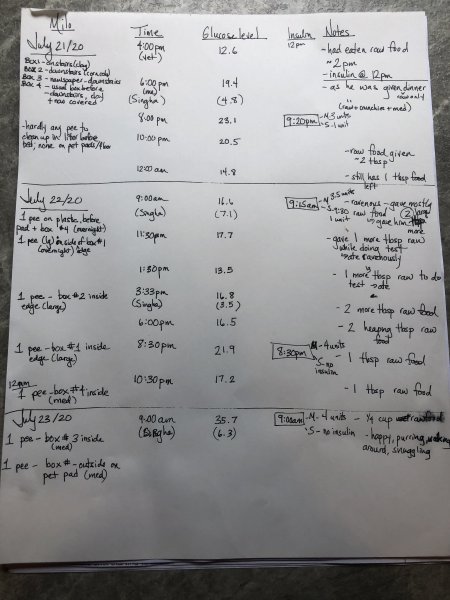 Milo Time Glucose level Insulin Notes
July 21/20 4:00pm 12.6 12pm - had eaten raw food
Box 1 - upstairs (clay) (vet) ~ 2pm
Box 2 - downstairs - insulin @ 12pm
Box 3 - newspaper - downstairs 6:00 pm 19.4 - as he was given dinner
Box 4 - usual box before (me) (raw + crunchies + med)
- downstairs, clay (Singha) (4.8)
+ now covered
8:00 pm 23.1 9:20pm M-3 units
S-1 unit
- hardly any pee to 10:00 pm 20.5
clean up
bed; none on pet pads/floor - raw food given
~ 2 tbsp
12:00 am 14.8 - still has 1 tbsp food
left
July 22/20 9:00am 16.6 9:45am M-3.5 units - ravenous - gave mostly
1 pee on plastic, before (Singha) (7.1) 1 unit raw food
pad + box #4 (overnight) gave him 2 more
1 pee (lg) on side of box #1 11:30pm 17.7 - gave 1 more tbsp raw
(overnight) edge while doing test
→ ate ravenously
1:30pm 13.5 - 1 more tbsp raw to do
test → ate
1 pee - box #2 inside 3:33pm 16.8 - 2 more tbsp raw food
edge (large) (Singha) (3.5)
6:00pm 16.5 - 2 heaping tbsp raw
food
1 pee - box #1 inside 8:30pm 21.9 8:30pm M-4 units - 1 tbsp raw food
edge (large) S-no
insulin
1 pee - box #4 inside 10:30pm 17.2 - 1 tbsp raw food
(med)
July 23/20 9:00am 35.7 9:00am M-4 units - 1/4 cup raw food
1 pee - box #3 inside (Singha) (6.3) S-no insulin - happy, purring, walking
(med) around, snuggling
1 pee - box # - outside on
pet pad (med)